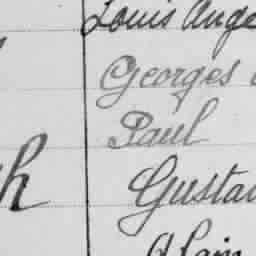 Louis Ange
Georges
Paul
Gustav
Alain